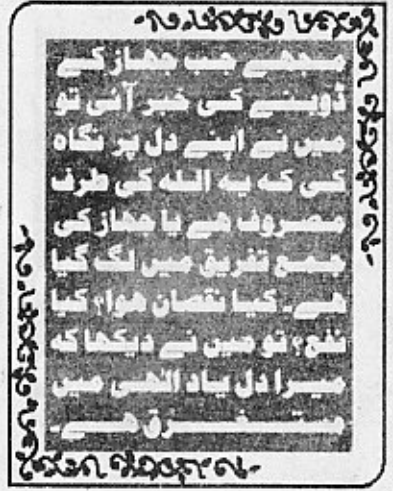 مجھے جب جھاز کے
ڈوبنے کی خبر آئی تو
میں نے اپنے دل پر نگاہ
کی کہ یہ اللہ کی طرف
مصروف ھے یا جھاز کی
جمع تفریق میں لگ گیا
ھے۔ کیا نقصان ھوا؟ کیا
نفع؟ تو میں نے دیکھا کہ
میرا دل یاد الٰھی میں
مستغرق ھے۔